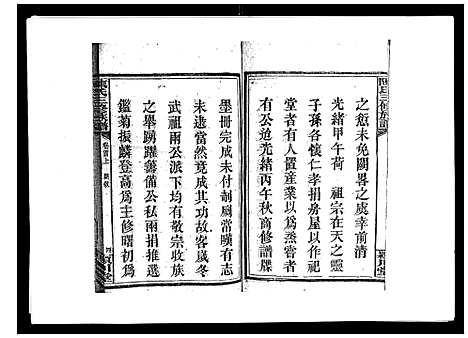 陳氏三修族譜
之愈未免闕畧之虞幸前清
光緒甲午荷　祖宗在天之靈
子孫各懷仁孝捐房屋以作祀
堂者有人置産業以爲烝嘗者
有公迨光緒丙午秋商修譜牒
潁川堂
墨冊完成未付剞劂常嘆有志
未逮當然竟成其功故客歲冬
武祖兩公派下均有敬宗收族
之舉踴躍籌備公私兩捐推選
鑑菊振麟登高爲主修曙初爲
陳氏三修族譜
卷首上